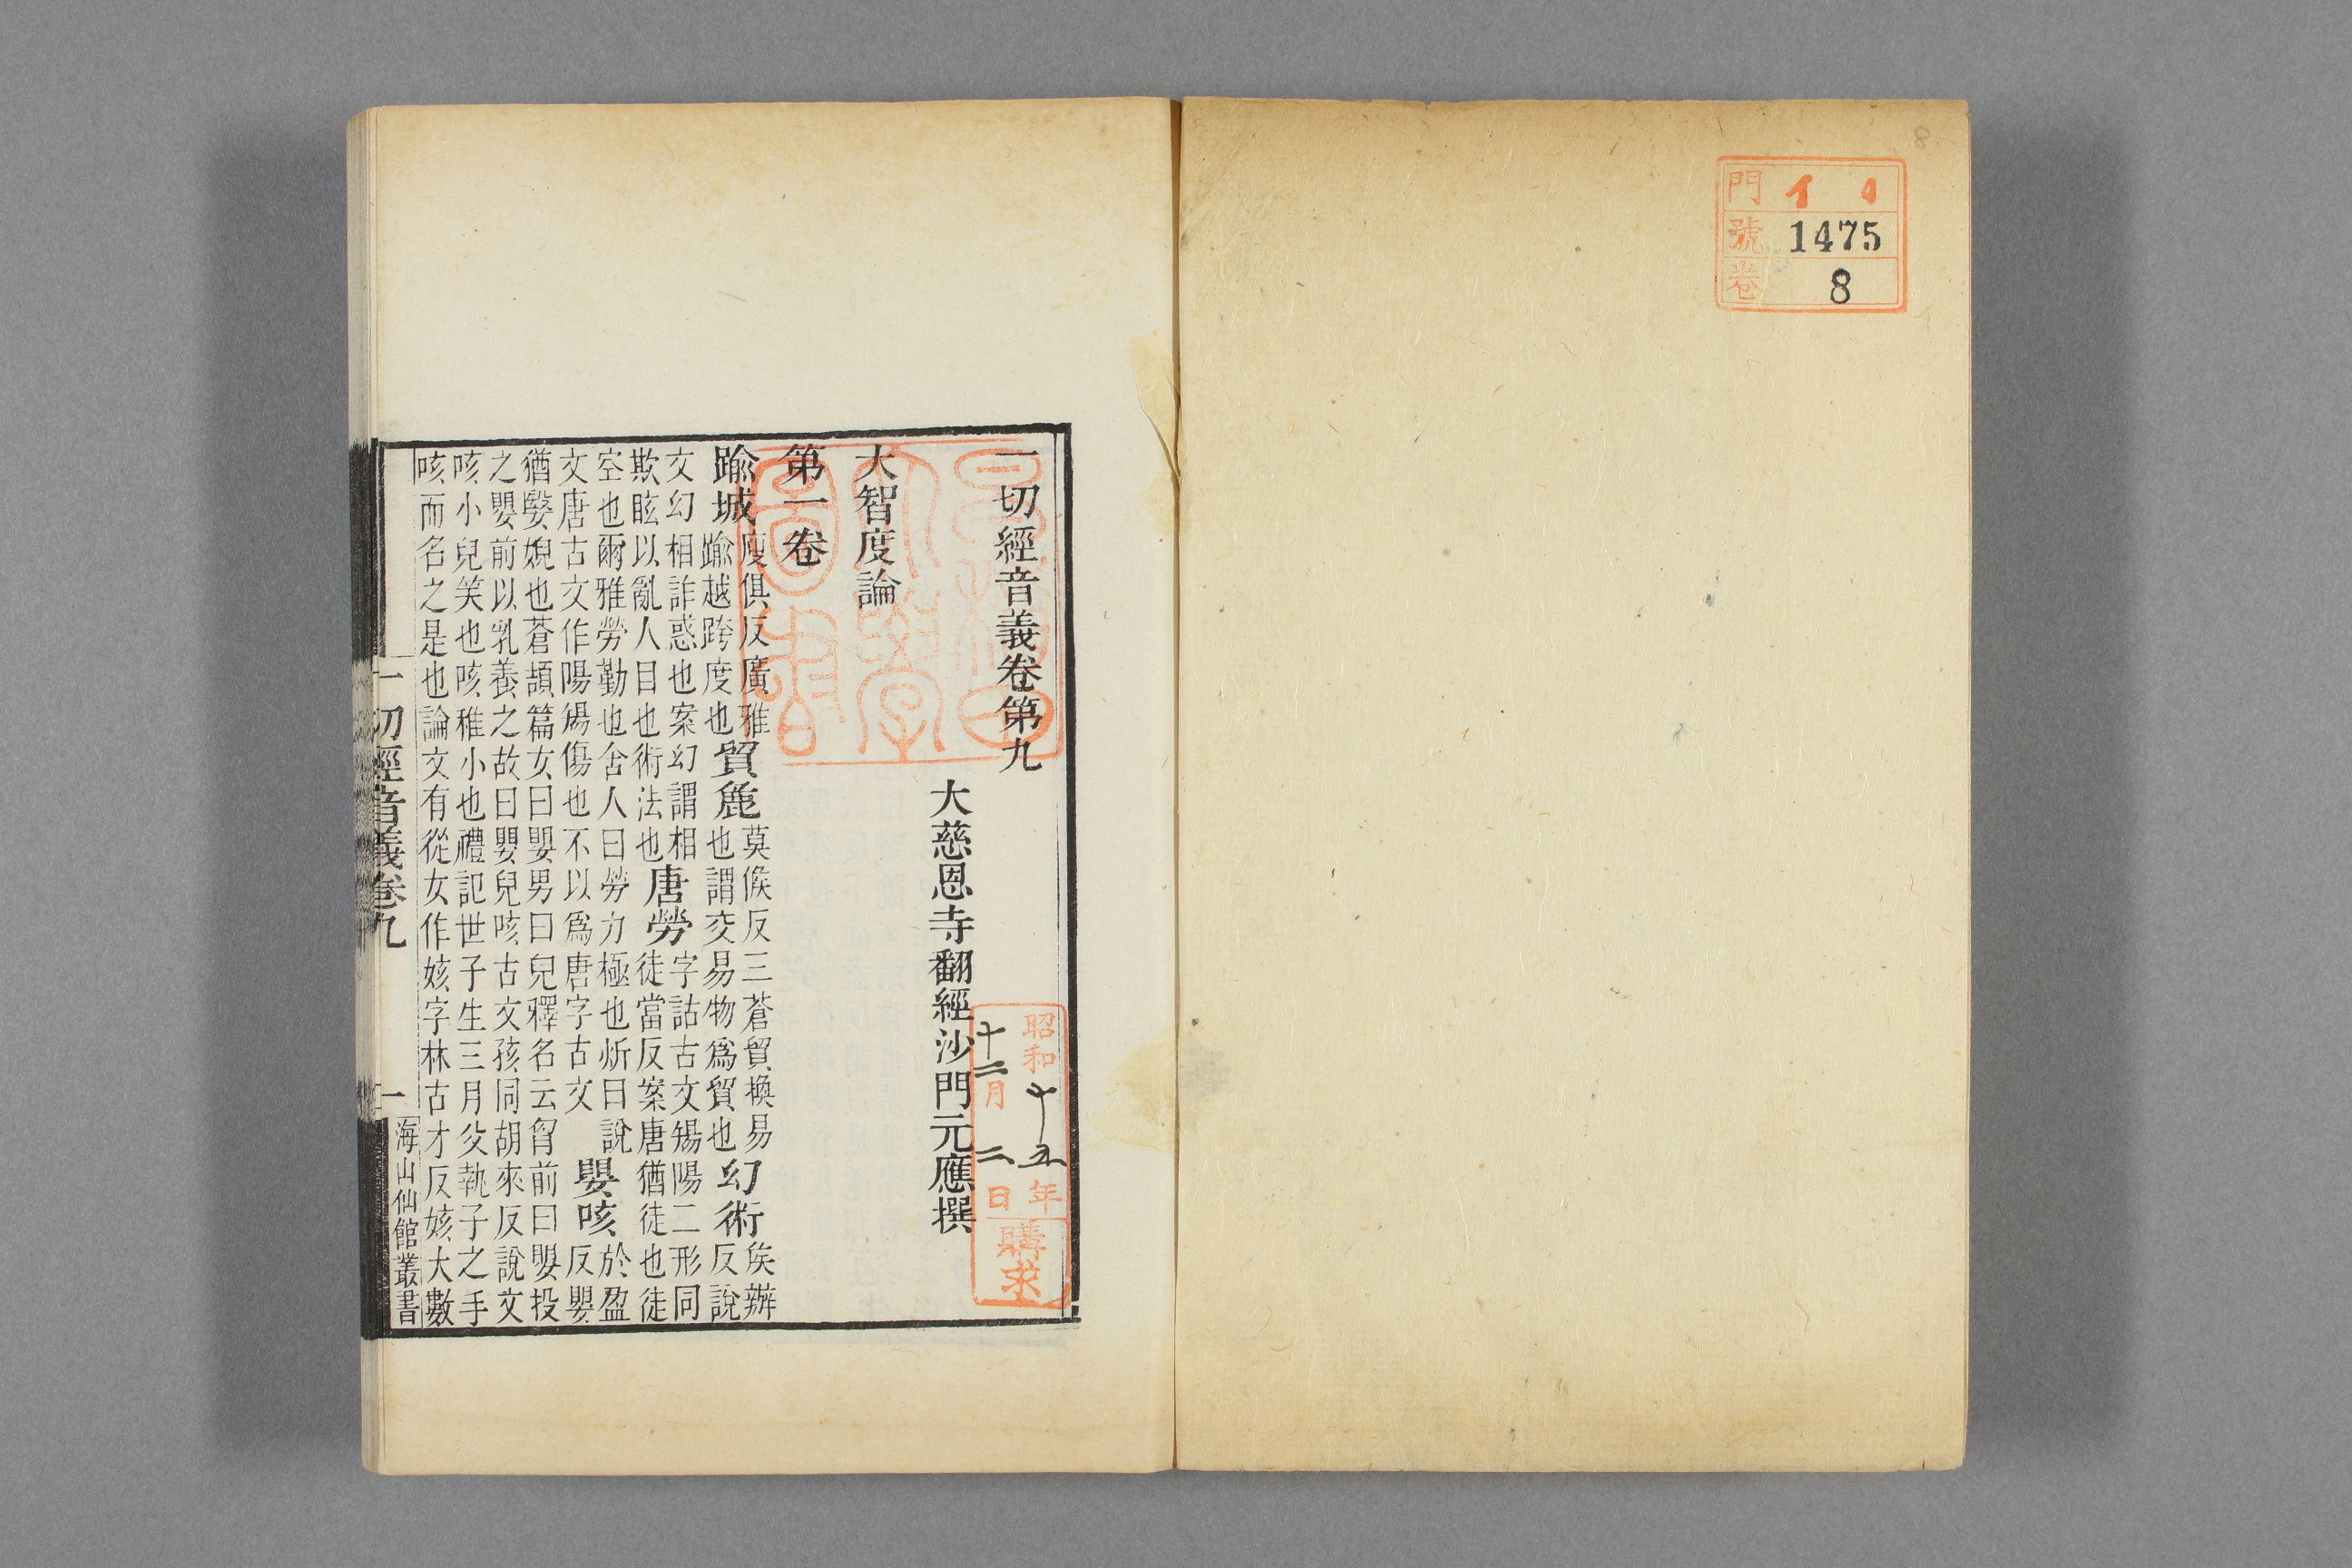 門 イ 4
號 1475
卷 8
一切經音義卷第九
大慈恩寺翻經沙門元應撰
大智度論
第一卷
踰城廋俱反廣雅踰越跨度也貿麁莫候反三蒼貿換易也謂交易物爲貿也幻術矦辦反說
文幻相詐惑也案幻謂相欺眩以亂人目也術法也唐勞字詁古文啺陽二形同徒當反案唐猶徒也徒
空也爾雅勞勤也舍人曰勞力極也炘曰說文唐古文作陽傷也不以爲唐字古文嬰咳於盈反嬰
猶嫛婗也蒼頡篇女曰嬰男曰兒釋名云胷前曰嬰投之嬰前以乳養之故曰嬰兒咳古文孩同胡來反說文
咳小兒笑也咳稚小也禮記世子生三月父執子之手咳而名之是也論文有從女作姟字林古才反姟大數
一切經音義卷九 一 海山仙館叢書
昭和十五年
十二月二日
購求